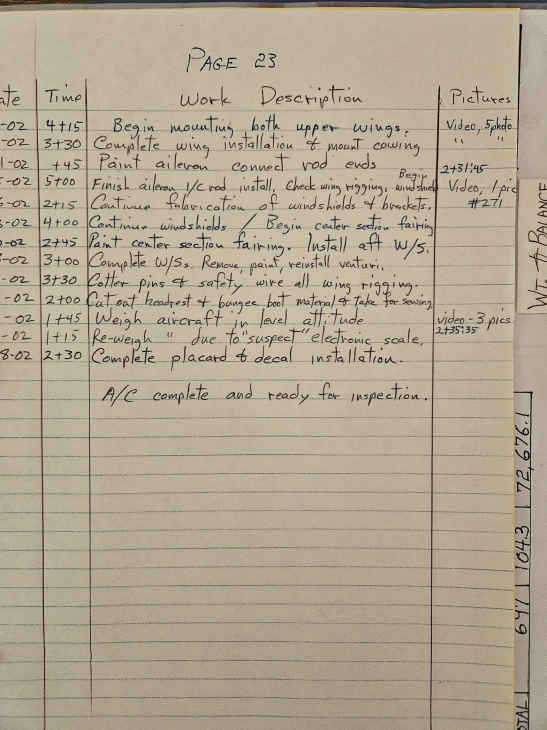 PAGE 23
ate Time Work Description Pictures
-02 4+15 Begin mounting both upper wings. Video, 5photo
-02 3+30 Complete wing installation & mount cowing " "
1-02 +45 Paint aileron connect rod ends 2+31:45
-02 5+00 Finish aileron I/C rod install, Check wing rigging, Begin windshield Video, 1 pic
-02 2+15 Continue fabrication of windshields & brackets. #271
-02 4+00 Continue windshields / Begin center section fairing
-02 2+45 Paint center section fairing. Install aft W/S.
-02 3+00 Complete W/Ss. Remove, paint, reinstall venturi.
-02 3+30 Cotter pins & safety wire all wing rigging.
-02 2+00 Cut out headrest & bungee boot material & take for sewing
-02 1+45 Weigh aircraft in level attitude video - 3 pics
-02 1+15 Re-weigh " due to "suspect" electronic scale. 2+35:35
8-02 2+30 Complete placard & decal installation.
A/C complete and ready for inspection.
WT. & BALANCE
OTAL 697 1043 72,676.1